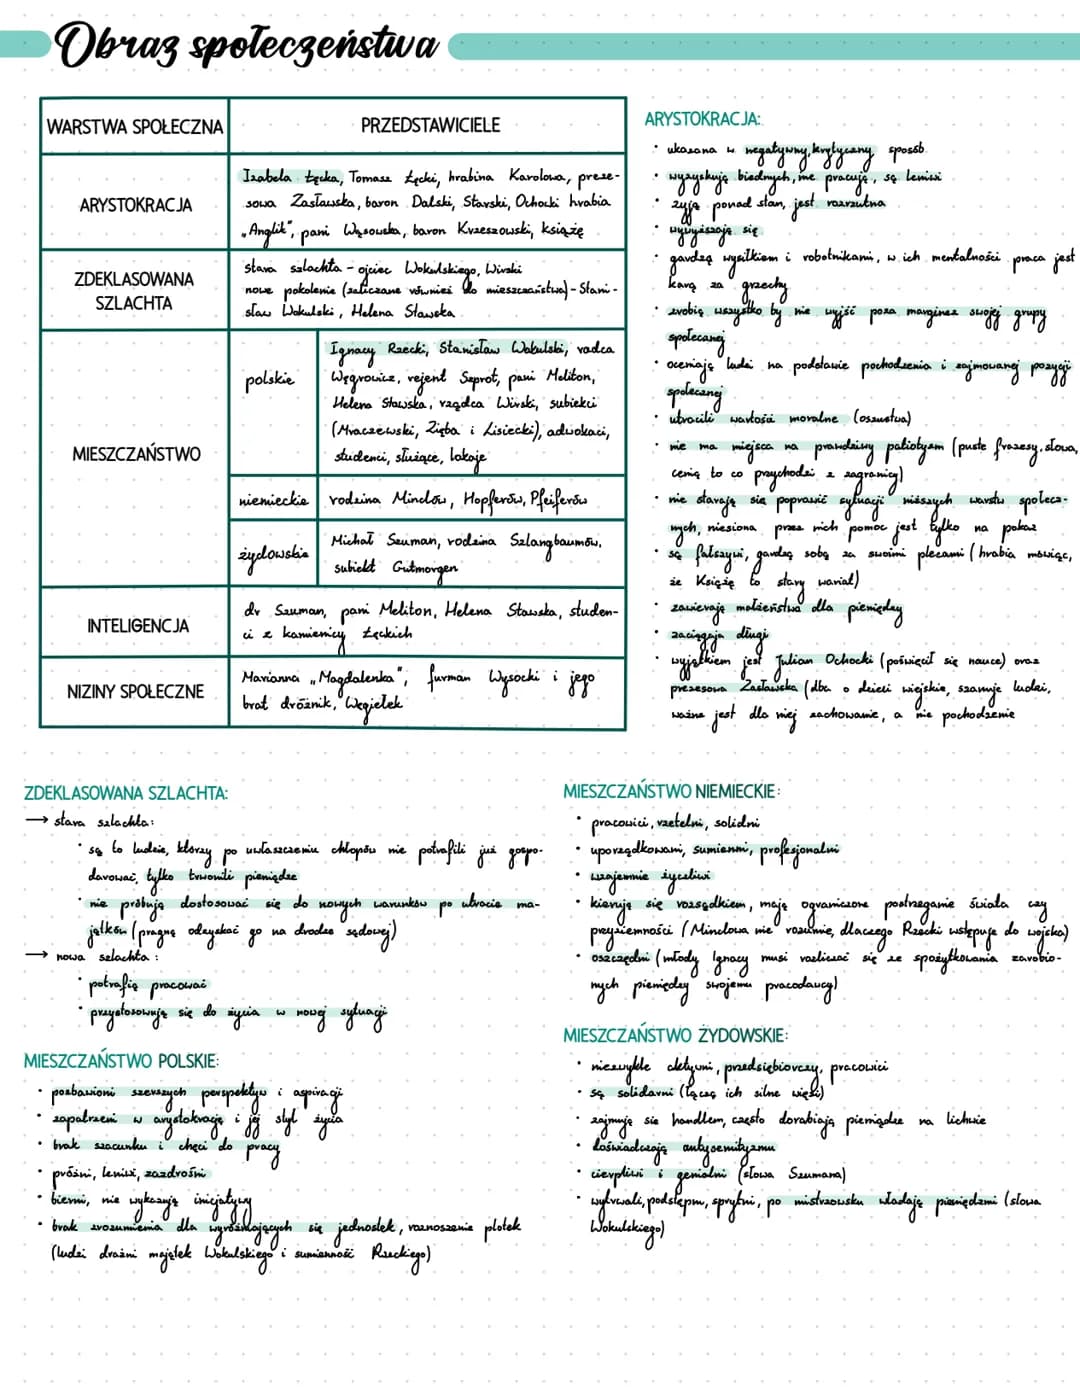 Obraz społeczeństwa
WARSTWA SPOŁECZNA
PRZEDSTAWICIELE
ARYSTOKRACJA
Izabela Łęcka, Tomasz Łęcki, hrabina Karolowa, preze-
sowa Zasławska, baron Dalski, Starski, Ochocki hrabia
„Anglik", pani Wąsowska, baron Krzeszowski, książę
ZDEKLASOWANA
SZLACHTA
stara szlachta - ojciec Wokulskiego, Wirski
nowe pokolenie (zaliczane również do mieszczaństwa) - Stani-
sław Wokulski, Helena Stawska
MIESZCZAŃSTWO
polskie
Ignacy Rzecki, Stanisław Wokulski, radca
Węgrowicz, rejent Szprot, pani Meliton,
Helena Stawska, rządca Wirski, subiekci
(Mraczewski, Zięba i Lisiecki), adwokaci,
studenci, służące, lokaje
niemieckie
rodzina Minclów, Hopferów, Pfeiferów
żydowskie
Michał Szuman, rodzina Szlangbaumów,
subiekt Gutmorgen
INTELIGENCJA
dr Szuman, pani Meliton, Helena Stawska, studen-
ci z kamienicy Łęckich
NIZINY SPOŁECZNE
Marianna „Magdalenka", furman Wysocki i jego
brat dróżnik, Węgiełek
ARYSTOKRACJA:
• ukazana w negatywny, krytyczny sposób
• wyzyskują biednych, nie pracują, są leniwi
• żyją ponad stan, jest rozrzutna
• wywyższają się
• gardzą wysiłkiem i robotnikami, w ich mentalności praca jest
karą za grzechy
• zrobią wszystko by nie wyjść poza margines swojej grupy
społecznej
• oceniają ludzi na podstawie pochodzenia i zajmowanej pozycji
społecznej
• utracili wartości moralne (oszustwa)
• nie ma miejsca na prawdziwy patiotyzm (puste frazesy, słowa,
cenią to co przychodzi z zagranicy)
• nie starają się poprawić sytuacji niższych warstw społecz-
nych, niesiona przez nich pomoc jest tylko na pokaz
• są fałszywi, gardzą sobą za swoimi plecami (hrabia mówiąc,
że Książę to stary wariat)
• zawierają małżeństwa dla pieniędzy
• zaciągają długi
• wyjątkiem jest Julian Ochocki (poświęcił się nauce) oraz
prezesowa Zasławska (dba o dzieci wiejskie, szanuje ludzi,
ważne jest dla niej zachowanie, a nie pochodzenie
ZDEKLASOWANA SZLACHTA:
→ stara szlachta:
• są to ludzie, którzy po uwłaszczeniu chłopów nie potrafili już gospo-
darować, tylko trwonili pieniądze
• nie próbują dostosować się do nowych warunków po utracie ma-
jątków (pragną odzyskać go na drodze sądowej)
→ nowa szlachta:
• potrafią pracować
• przystosowują się do życia w nowej sytuacji
MIESZCZAŃSTWO POLSKIE:
• pozbawioni szerszych perspektyw i aspiracji
• zapatrzeni w arystokrację i jej styl życia
• brak szacunku i chęci do pracy
• próżni, leniwi, zazdrośni
• bierni, nie wykazują inicjatywy
• brak zrozumienia dla wyróżniających się jednostek, roznoszenie plotek
(ludzi drażni majątek Wokulskiego i sumienność Rzeckiego)
MIESZCZAŃSTWO NIEMIECKIE:
• pracowici, rzetelni, solidni
• uporządkowani, sumienni, profesjonalni
• wzajemnie życzliwi
• kierują się rozsądkiem, mają ograniczone postrzeganie świata czy
przyziemności (Minclowa nie rozumie, dlaczego Rzecki wstępuje do wojska)
• oszczędni (młody Ignacy musi rozliczać się ze spożytkowania zarobio-
nych pieniędzy swojemu pracodawcy)
MIESZCZAŃSTWO ŻYDOWSKIE:
• niezwykle aktywni, przedsiębiorczy, pracowici
• są solidarni (łączą ich silne więzi)
• zajmują się handlem, często dorabiają pieniądze na lichwie
• doświadczają antysemityzmu
• cierpliwi i genialni (słowa Szumana)
• wytrwali, podstępni, sprytni, po mistrzowsku władają pieniędzmi (słowa
Wokulskiego)